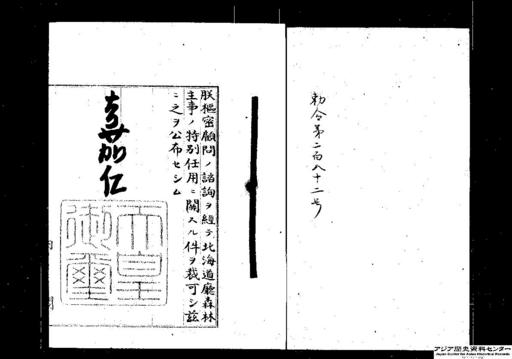 勅令第二百八十二号
朕樞密顧問ノ諮詢ヲ經テ北海道廳森林
主事ノ特別任用ニ關スル件ヲ裁可シ茲
ニ之ヲ公布セシム
嘉仁
天皇
御璽
アジア歴史資料センター
Japan Center for Asian Historical Records